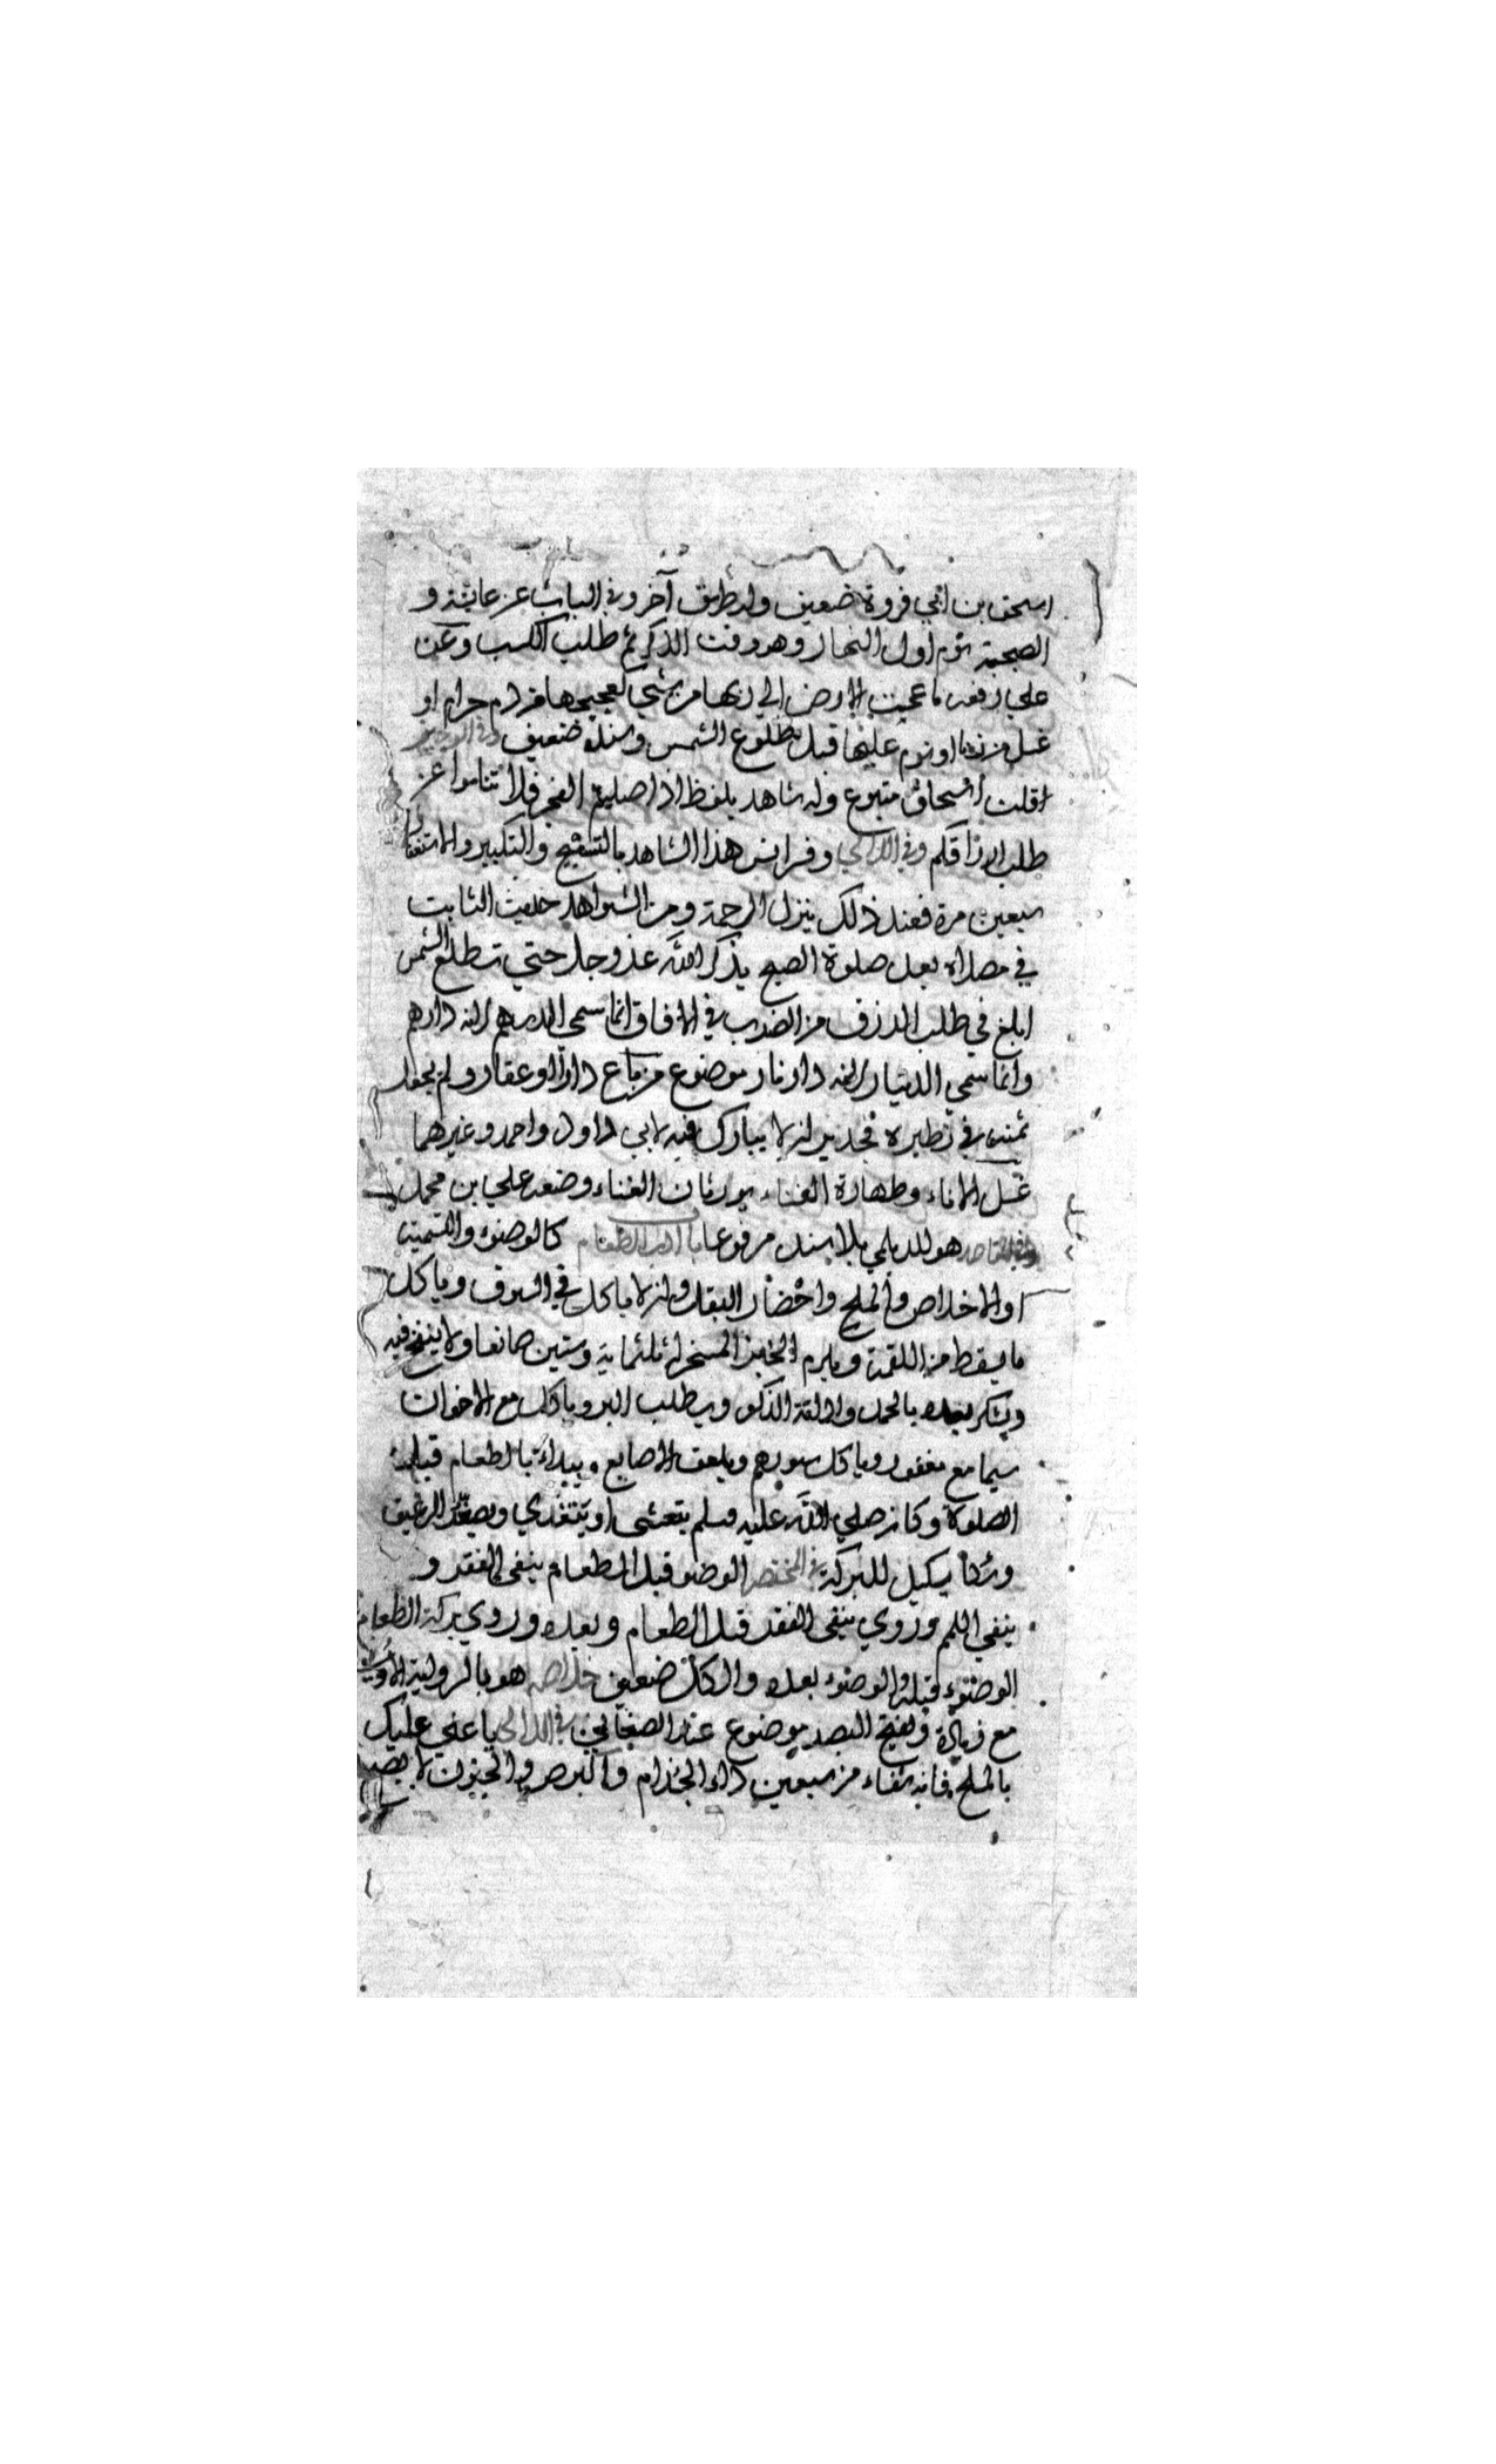 اسحق بن ابي فروة ضعيف وله طريق آخر وفي الباب عن عايشة و
الصبحة نوم اول النهار وهو وقت الذكر ثم طلب الكسب وعن
علي رفعه ما عجت الارض الي ربها من شي كعجيجها من دم حرام او
غسل من زنا او نوم عليها قبل طلوع الشمس وسنده ضعيف وفي الوجيز
اقلت اسحاق متبوع وله شاهد بلفظ اذا صليتم الفجر فلا تناموا عن
طلب ارزاقكم وفي اللآلي وفسر انس هذا الشاهد بالتسبيح والتكبير والاستغفار
سبعين مرة فعند ذلك ينزل الرحمة ومن الشواهد حديث الثابت
في مصلاه بعد صلوة الصبح يذكر الله عز وجل حتي تطلع الشمس
ابلغ في طلب الرزق من الضرب في الافاق انما سمي الدرهم لانه دار هم
وانما سمي الدينار لانه دار نار موضوع من باع دارا او عقارا ولم يجعل
ثمنه في نظيره فجدير ان لا يبارك فيه لابي داود واحمد وغيرهما
غسل الاناء وطهارة الفناء يورثان الغناء وضعه علي بن محمد
وفي المقاصد هو للديلمي بلا سند مرفوعا باب ادب الطعام كالوضوء والتسمية
او الاخلاص والملح واحضار البقل وان لا ياكل في السوق وياكل
ما يسقط من اللقمة ويكرم الخبز المسخر له ثلثماية وستين صانعا ولا ينفخ فيه
ويشكر بعده بالحمد والذكر ويطلب البر وياكل مع الاخوان
سيما مع مغفور وياكل سورهم ويلعق الاصابع ويبداء بالطعام قبل
الصلوة وكان صلي الله عليه وسلم يتعشى او يتغدي ويصغر الرغيف
يكيل للبركة في المختصر الوضو قبل الطعام ينفي الفقر و
ينفي اللمم وروي ينفي الفقر قبل الطعام وبعده وروي بركة الطعام
الوضوء قبله والوضوء بعده والكل ضعيف خلاصه هو بالرواية الاولي
مع زيادة ويفتح البصر موضوع عند الصغاني في اللآلي يا علي عليك
بالملح فانه شفاء من سبعين داء الجذام والبرص والجنون لا يصح